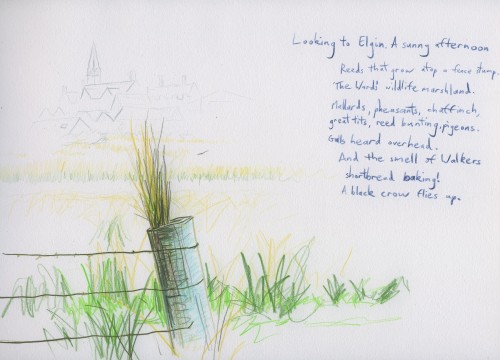 Looking to Elgin. A sunny afternoon
Reeds that grow atop a fence stump.
The Wards' wildlife marshland.
Mallards, pheasants, chaffinch,
great tits, reed bunting, pigeons.
Gulls heard overhead.
And the smell of Walkers
shortbread baking!
A black crow flies up.